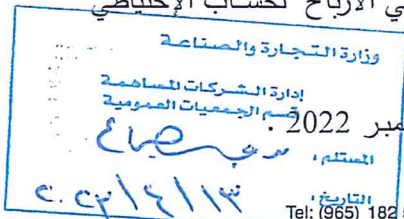 ي الأرباح لحساب الإحتياطي
وزارة التجارة والصناعة
إدارة الشركات المساهمة
قسم الجمعيات العمومية
مبر 2022 .
المستلم :
التاريخ : ٢٠٢٣/٤/١٣
Tel: (965) 182